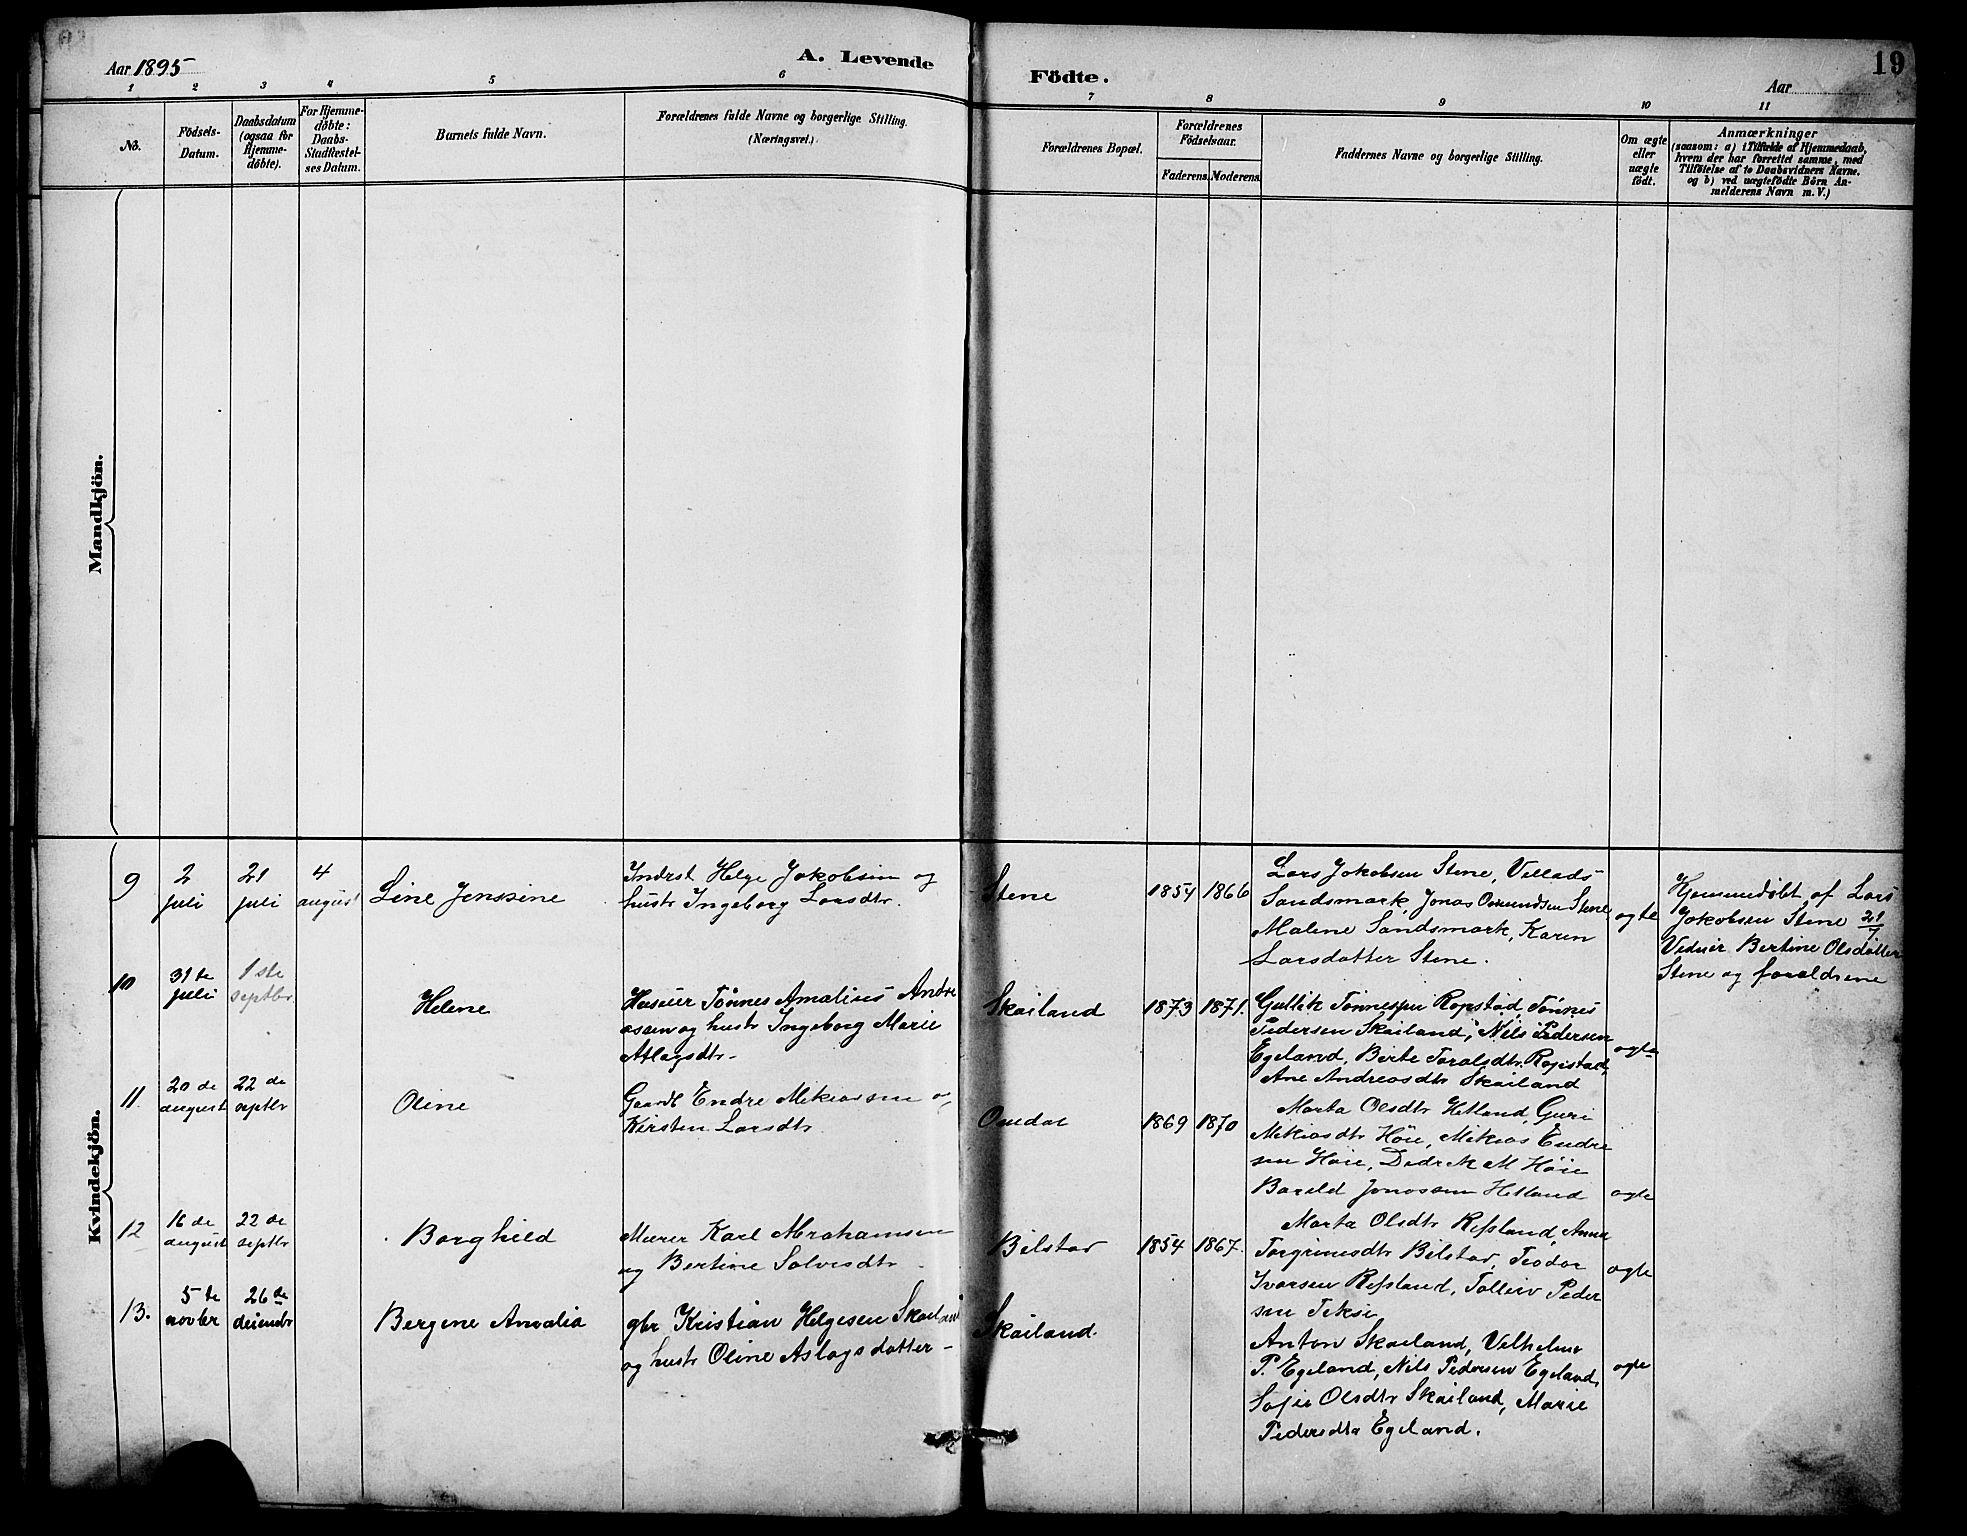 Aar 1895
A. Levende
Födte.
19
Aar
1 2 3 4 5 6 7 8 9 10 11
No.
Födsels-
Datum.
Daabsdatum
(ogsaa for
Hjemme-
döbte).
For Hjemme-
döbte:
Daabs-
Stadfæstel-
ses Datum.
Barnets fulde Navn.
Forældrenes fulde Navne og borgerlige Stilling.
(Næringsvei.)
Forældrenes Bopæl.
Forældrenes
Födselsaar.
Faderens. Moderens.
Faddernes Navne og borgerlige Stilling.
Om ægte
eller
uægte
födt.
Anmærkninger
(saasom: a) i Tilfælde af Hjemmedaab,
hvem der har forrettet samme, med
Tilföielse af to Daabsvidners Navne,
og b) ved uægtefödte Börn An-
melderens Navn m. V.)
Mandkjön.
Kvindekjön.
9
2
juli
21
juli
4
august
Line Jenssine
Indrst Helge Jakobsen og
hustr Ingeborg Larsdtr.
Stene
1854
1866
Lars Jakobsen Stene, Villads
Sandsmark, Jonas Omundsen Stene
Malene Sandsmark, Karen
Larsdatter Stene.
ægte
Hjemmedøbt af Lars
Jakobsen Stene 21/7
Vidner Bertine Olsdatter
Stene og forældrene
10
31 te
juli
1 ste
septbr.
Helene
Huseier Tønnes Amalius Andre
asen og hustr Ingeborg Marie
Atlagsdtr.
Skailand
1873
1871.
Gullik Tønnessen Ropstad, Tønnes
Pedersen Skailand, Nils Pedersen
Egeland, Berte Taralsdtr. Ropstad,
Ane Andreasdtr Skailand
ægte
11.
20 de
august
22 de
septbr
Oline
Gaardb Endre Mikiassen og
Kirsten Larsdtr
Omdal
1869
1870
Marta Olsdtr Hetland, Guri
Mikiasdtr Høie, Mikias Endre
sen Høie, Didrik M Høie
Bareld Jonassen Hetland
ægte
12
16 de
august
22 de
septbr
Borghild
Murer Karl Abrahamsen
og Bertine Salvesdtr
Bilstad
1854
1867.
Marta Olsdtr Refsland, Anna
Torgrimsdtr Bilstad, Teodor
Ivarsen Refsland, Tolleiv Peder
sen Tekse
ægte
13.
5 te
novbr
26 de
decembr
Bergine Amalia
gbr Kristian Helgesen Skailand
og hustr Oline Aslagsdatter
Skailand.
Anton Skailand, Vilhelm
P. Egeland, Nils Pedersen Egeland,
Sofie Olsdtr Skailand, Marie
Pedersdtr Egeland.
ægte